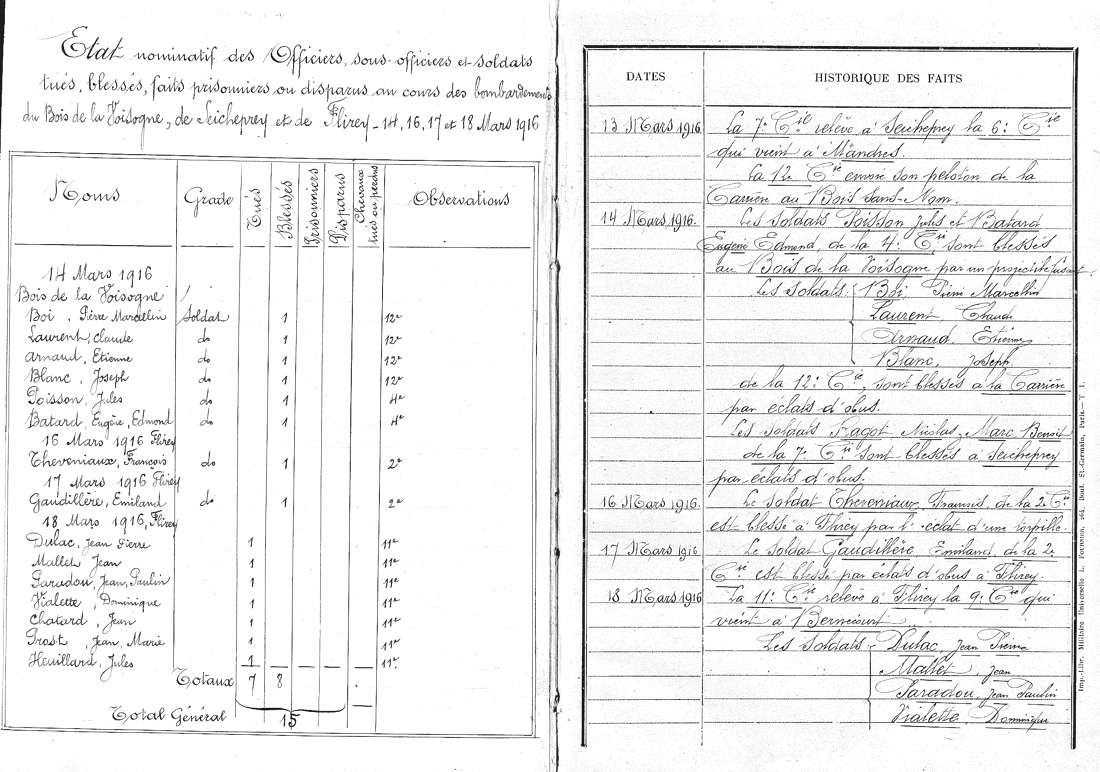 Etat nominatif des Officiers, sous-officiers et soldats
tués, blessés, faits prisonniers ou disparus au cours des bombardements
du Bois de la Voisogne, de Seicheprey et de Flirey - 14, 16, 17 et 18 Mars 1916
Noms Grade Tués Blessés Prisonniers Disparus Chevaux tués ou perdus Observations
14 Mars 1916
Bois de la Voisogne
Boi, Pierre Marcellin Soldat 1 12e
Laurent, Claude do 1 12e
Arnaud, Etienne do 1 12e
Blanc, Joseph do 1 12e
Poisson, Jules do 1 4e
Batard, Eugène, Edmond do 1 4e
16 Mars 1916 Flirey
Theveniaux, François do 1 2e
17 Mars 1916 Flirey
Gaudillère, Emiland do 1 2e
18 Mars 1916, Flirey
Dulac, Jean Pierre 1 11e
Mallet Jean 1 11e
Paradou, Jean, Paulin 1 11e
Vialette, Dominique 1 11e
Chatard, Jean 1 11e
Prost, Jean, Marie 1 11e
Heuillard, Jules 1 11e
Totaux 7 8
Total Général 15
DATES HISTORIQUE DES FAITS
13 Mars 1916. La 7e Cie relève à Seicheprey la 6e Cie
qui vient à Mandres.
La 12e Cie envoie son peloton de la
Carrière au Bois Sans-Nom.
14 Mars 1916. Les soldats Poisson Jules et Batard
Eugène Edmond, de la 4e Cie sont blessés
au Bois de la Voisogne par un projectile fusant.
Les soldats: Boi Pierre Marcellin
Laurent, Claude
Arnaud, Etienne
Blanc, Joseph
de la 12e Cie, sont blessés à la Carrière
par éclats d'obus.
Les soldats Ragot Nicolas, Marc Benoit
de la 7e Cie sont blessés à Seicheprey
par éclats d'obus.
16 Mars 1916. Le soldat Theveniaux, François, de la 2e Cie
est blessé à Flirey par l'éclat d'une torpille.
17 Mars 1916 Le soldat Gaudillère Emiland, de la 2e
Cie est blessé par éclats d'obus à Flirey.
18 Mars 1916 La 11e Cie relève à Flirey la 9e Cie qui
vient à Bernécourt
Les soldats - Dulac, Jean Pierre
Mallet, Jean
Paradou, Jean Paulin
Vialette Dominique